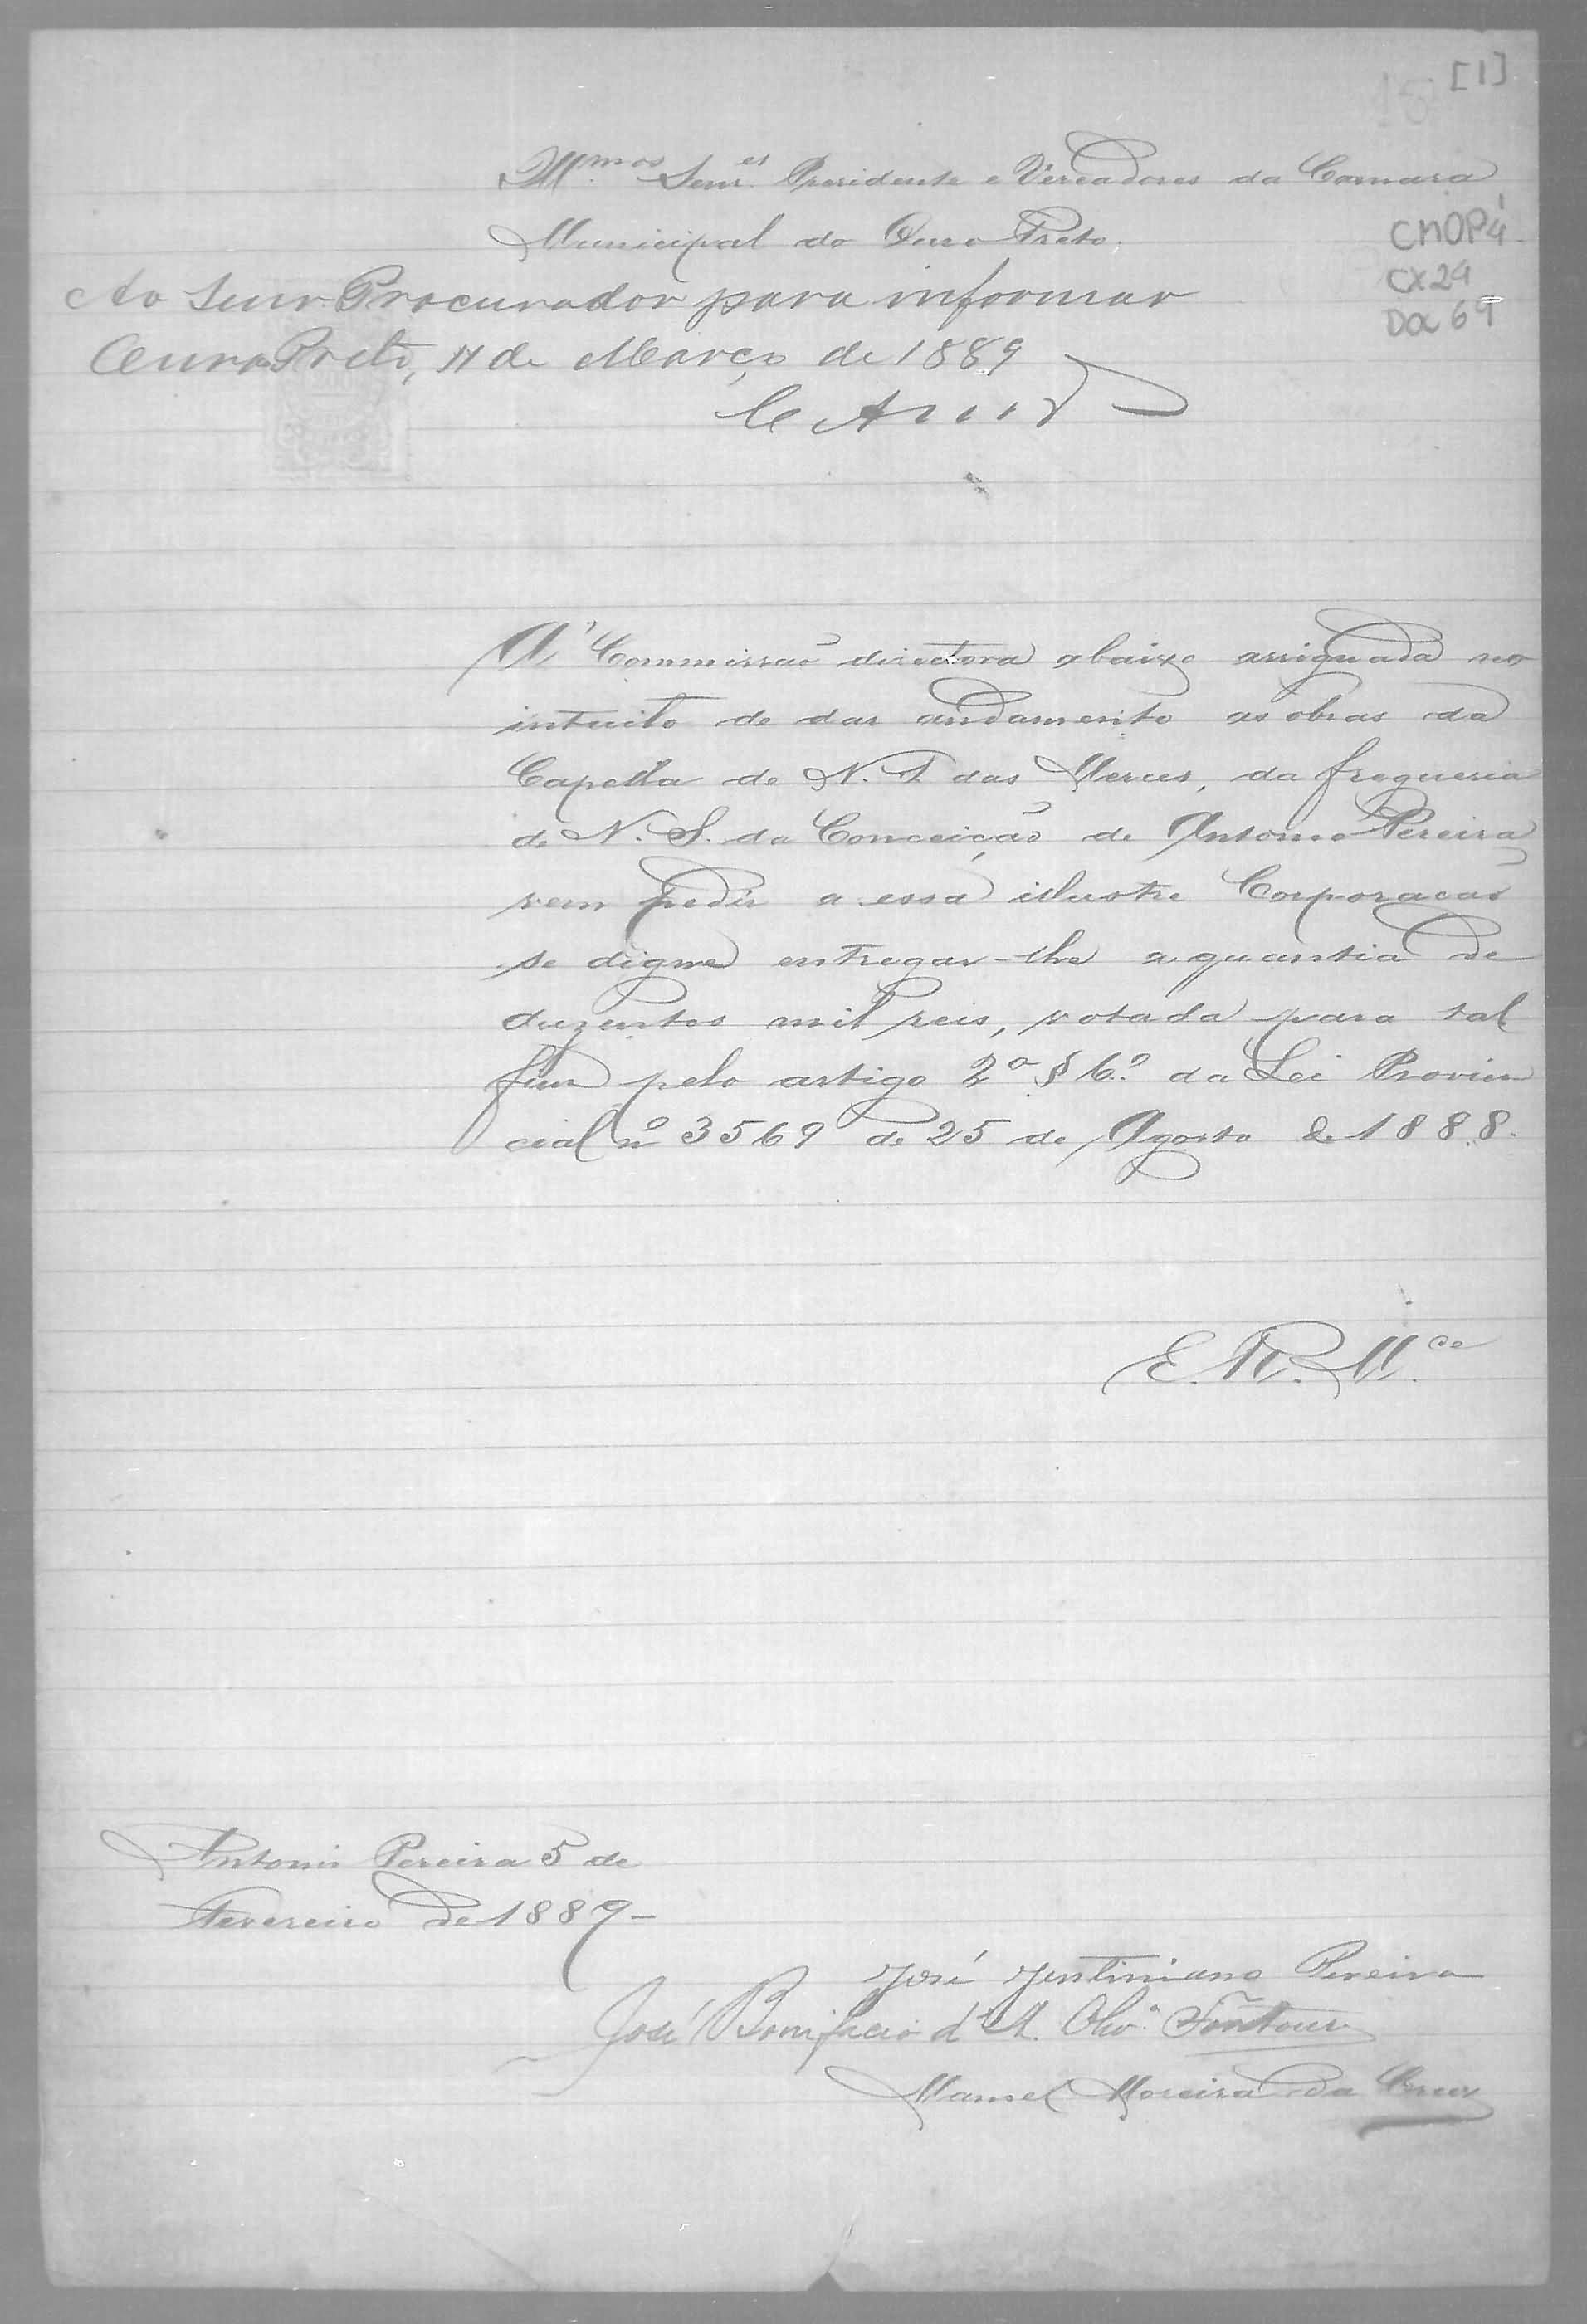 [1]
Illmos Senres Presidente e Vereadores da Camara
Municipal do Ouro Preto.
CMOP 4
CX 24
Doc 69
Ao Snr Procurador para informar
Ouro Preto, 11 de Março de 1889
A' Commissão directora abaixo assignada no
intuito de dar andamento as obras da
Capella de N. S. das Merces, da freguesia
de N. S. da Conceição de Antonio Pereira
vem pedir a essa illustre Corporacão
se digne entregar-lhe a quantia de
duzentos mil reis, votada para tal
fim pelo artigo 2º § 6º da Lei Provin
cial nº 3569 de 25 de Agosto de 1888.
E. R. Mce
Antonio Pereira 5 de
Fevereiro de 1889-
José Justiniano Pereira
José Bonifacio d' A. Olivª Fontoura
Manoel Moreira da Cruz